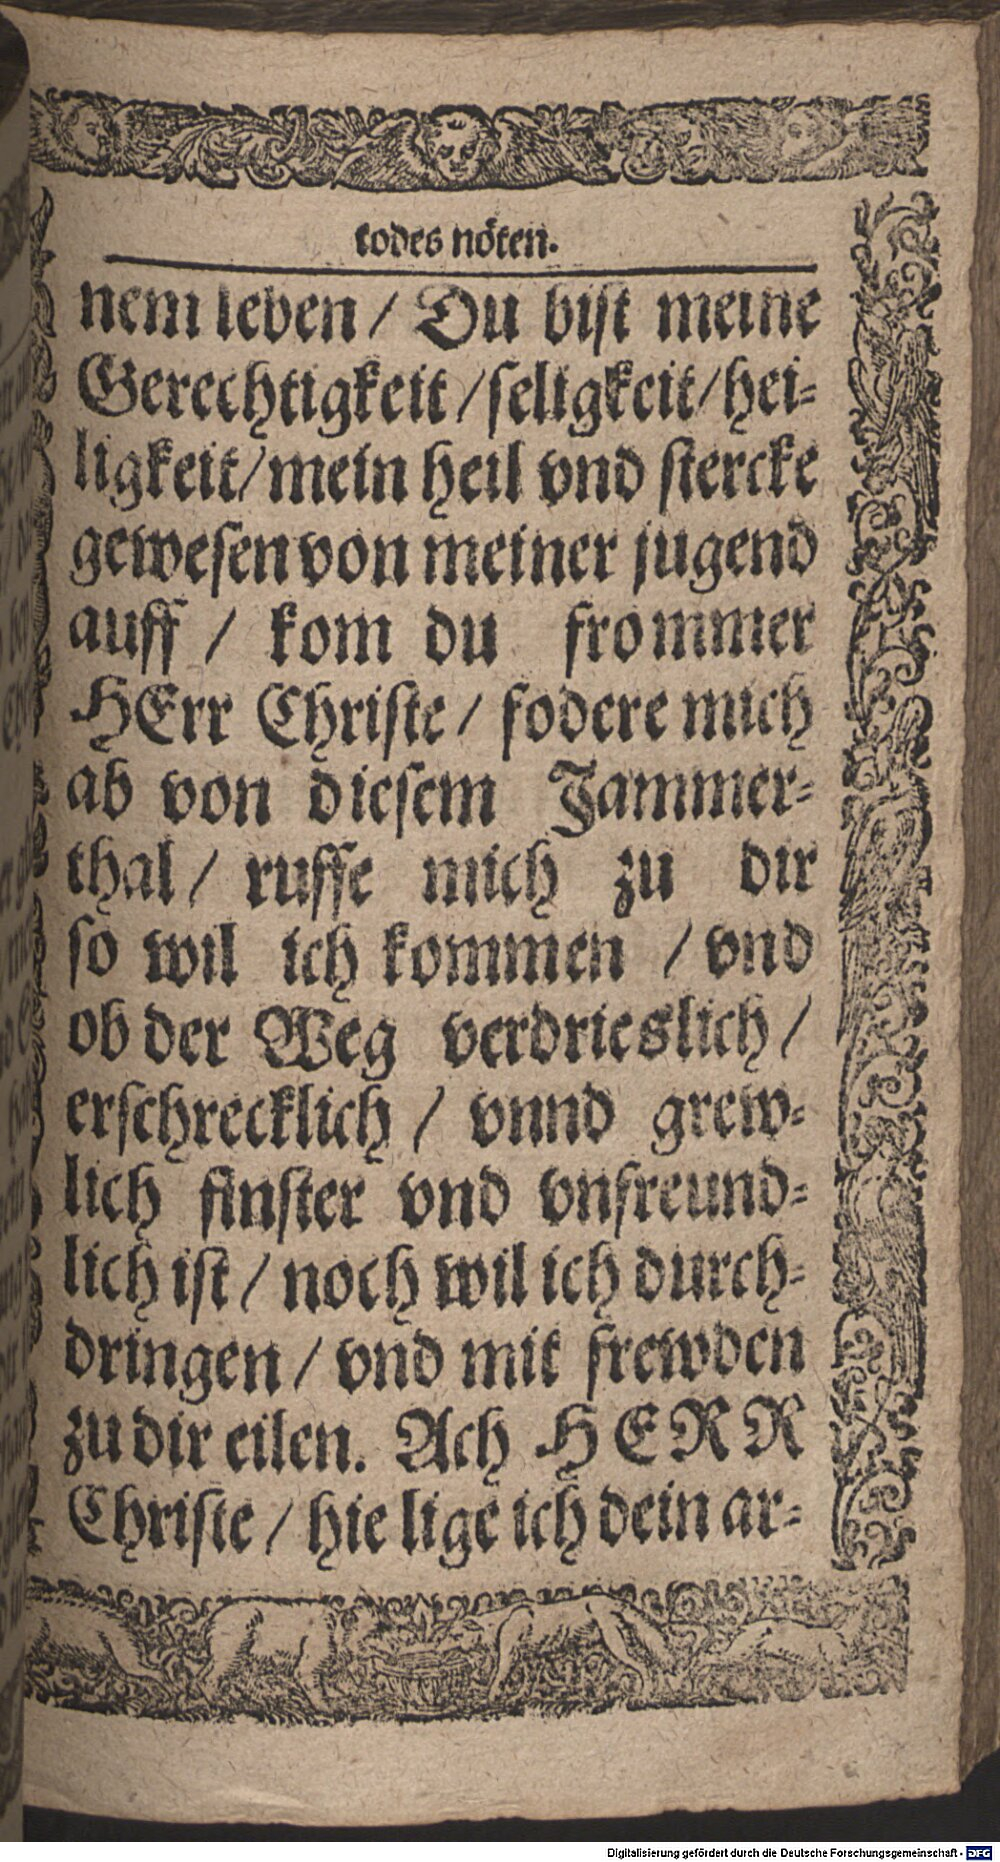 todes nöten.
nem leben / Du bist meine
Gerechtigkeit / seligkeit / hei-
ligkeit / mein heil vnd stercke
gewesen von meiner jugend
auff / kom du frommer
HErr Christe / fodere mich
ab von diesem Jammer-
thal / ruffe mich zu dir
so wil ich kommen / vnd
ob der Weg verdrieslich /
erschrecklich / vnnd grew-
lich finster vnd vnfreund-
lich ist / noch wil ich durch-
dringen / vnd mit frewden
zu dir eilen. Ach HERR
Christe / hie lige ich dein ar-
Digitalisierung gefördert durch die Deutsche Forschungsgemeinschaft - DFG